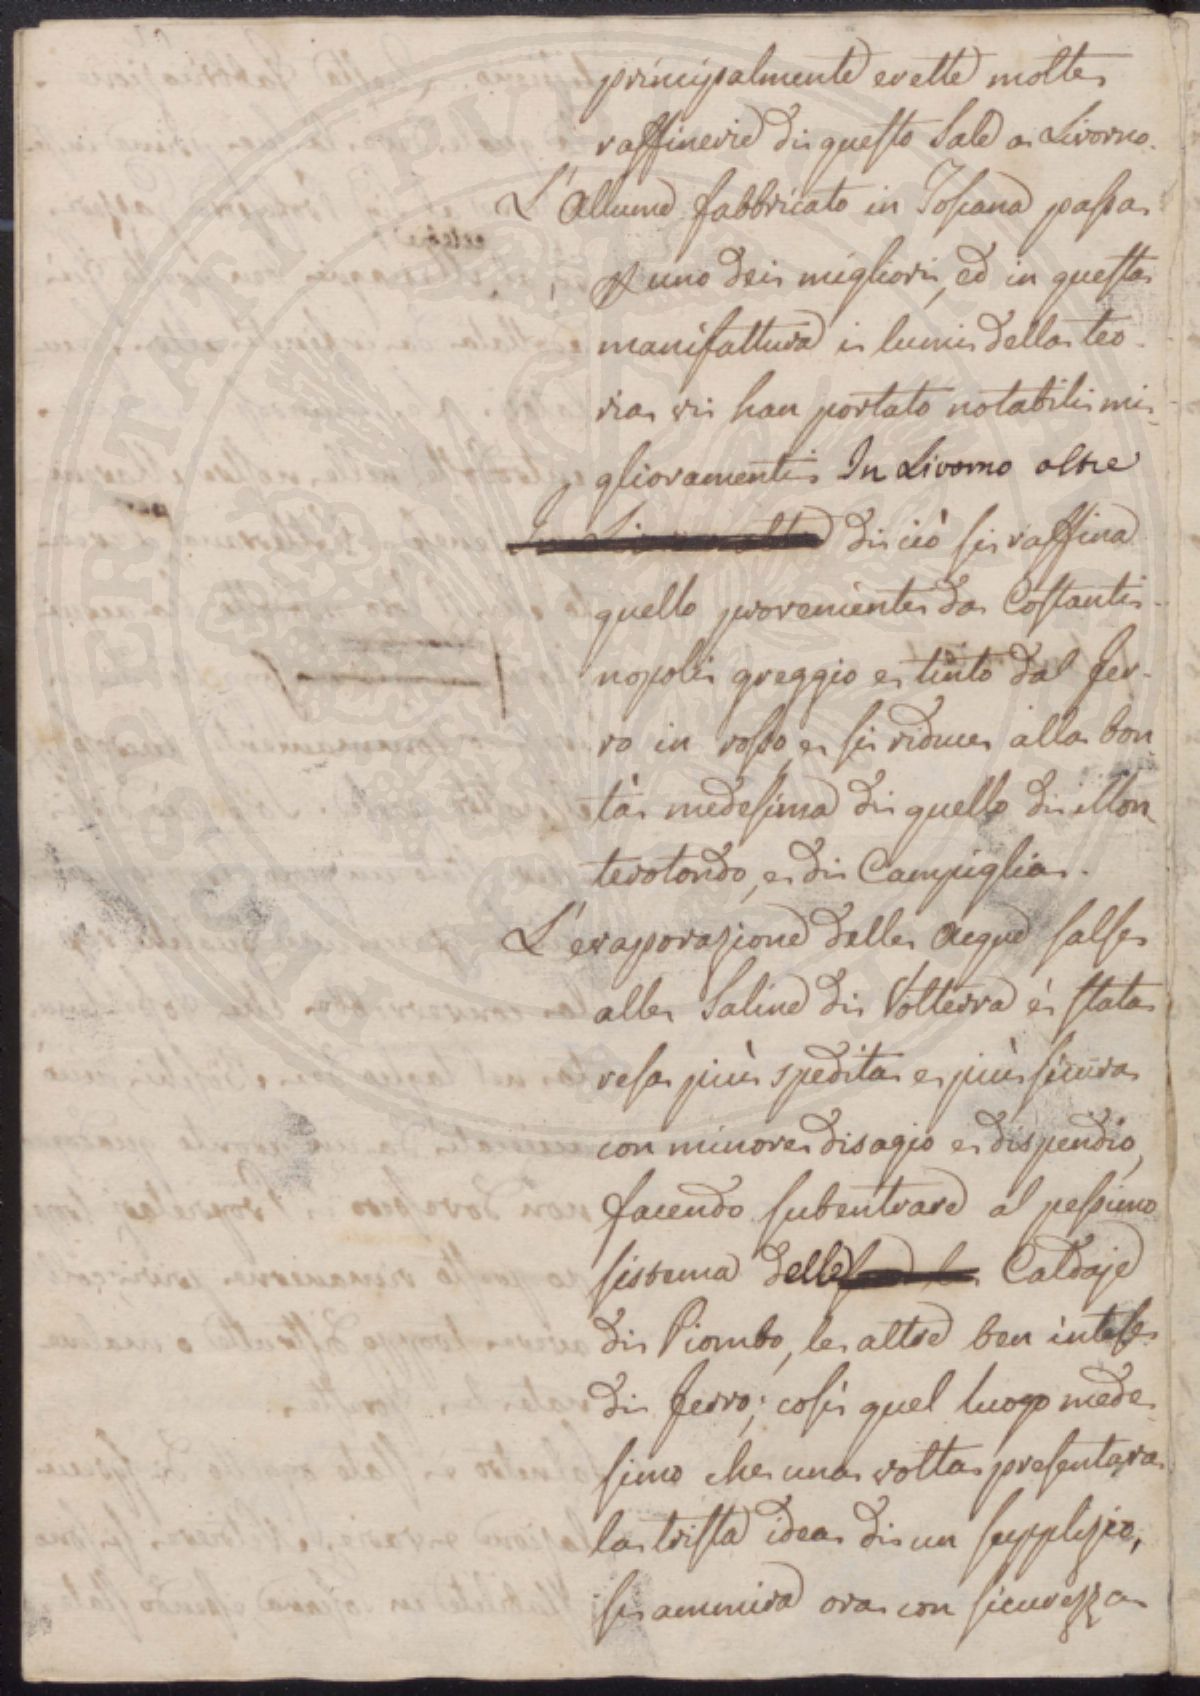 principalmente erette molte
raffinerie di questo Sale a Livorno.
L'Allume fabbricato in Toscana passa
p uno dei migliori, ed in questa
manifattura i lumi della teo-
ria vi han portato notabili mi-
glioramenti. In Livorno oltre
di ciò si raffina
quello proveniente da Costanti-
nopoli greggio e tinto dal fer-
ro in rosso, e si riduce alla bon
tà medesima di quello di Mon
terotondo, e di Campiglia.
L'evaporazione delle Acque salse
alle Saline di Volterra è stata
resa più spedita e più sicura
con minore disagio e dispendio,
facendo subentrare al pessimo
sistema delle Caldaje
di Piombo, le altre ben intese
di ferro; così quel luogo mede-
simo che una volta presentava
la trista idea di un supplizio,
si ammira ora con sicurezza